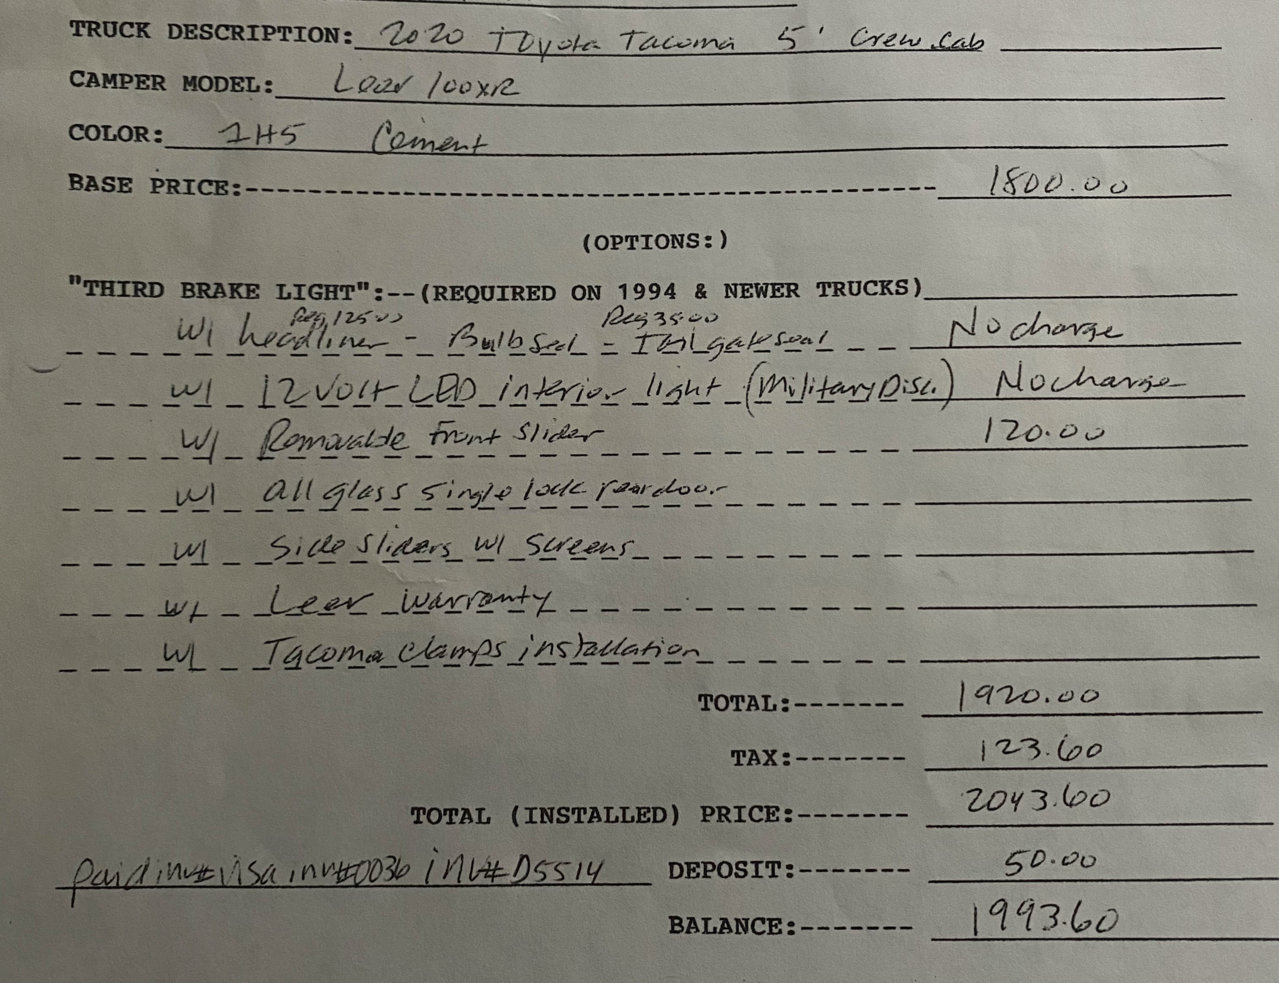 TRUCK DESCRIPTION: 2020 Toyota Tacoma 5' Crew Cab
CAMPER MODEL: Leer 100XR
COLOR: 1H5 Cement
BASE PRICE:---------------------------------------- 1800.00
(OPTIONS:)
"THIRD BRAKE LIGHT":--(REQUIRED ON 1994 & NEWER TRUCKS)
Reg 125.00 Reg 35.00
W/ headliner - Bulb Seal = Tailgate seal No charge
W/ 12 Volt LED interior light (Military Disc.) No charge
W/ Removable Front Slider 120.00
W/ all glass single lock rear door
W/ Side Sliders W/ Screens
W/ Leer Warranty
W/ Tacoma clamps installation
TOTAL:------- 1920.00
TAX:------- 123.60
TOTAL (INSTALLED) PRICE:------- 2043.60
paid inv# Visa inv#0036 inv# D5514 DEPOSIT:------- 50.00
BALANCE:------- 1993.60